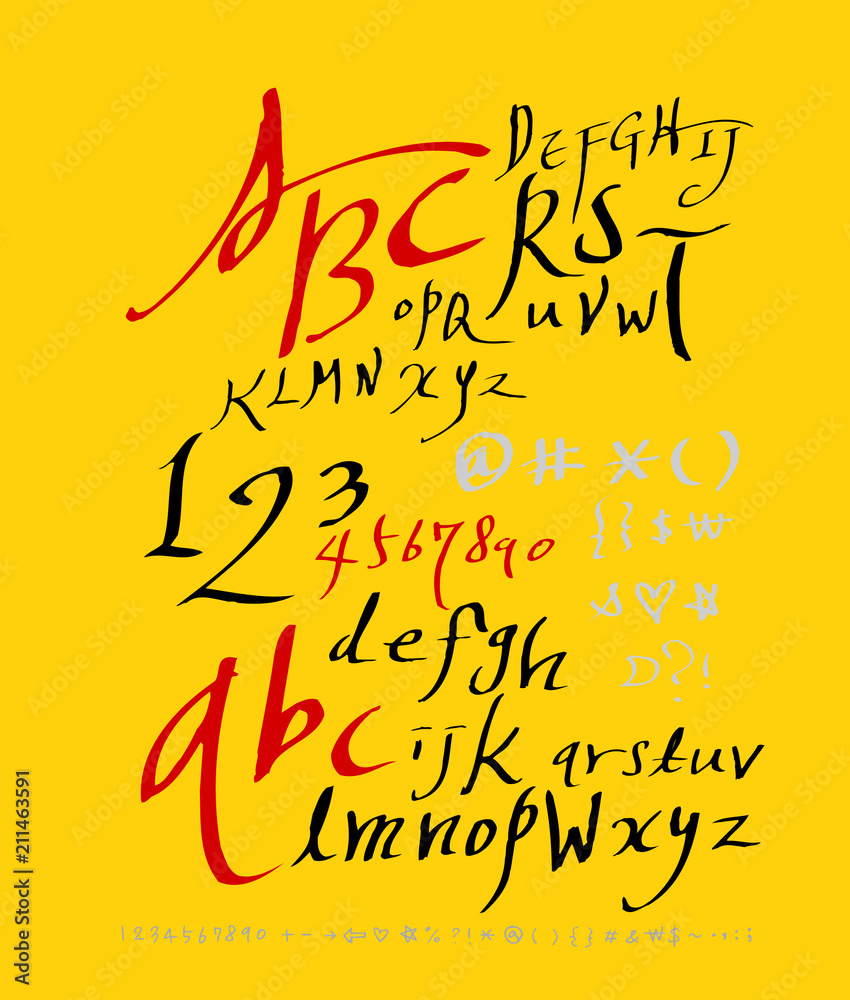 ABC
DEFGHIJ
RST
OPQ
UVW
KLMN
XYZ
123
@#*()
{}$₩
4567890
defgh
abc
ijk
qrstuv
lmnop
wxyz
D?!
1234567890 +-→⇦♡☆%?!*@(){}#&₩$~·,:;
Adobe Stock | #211463591